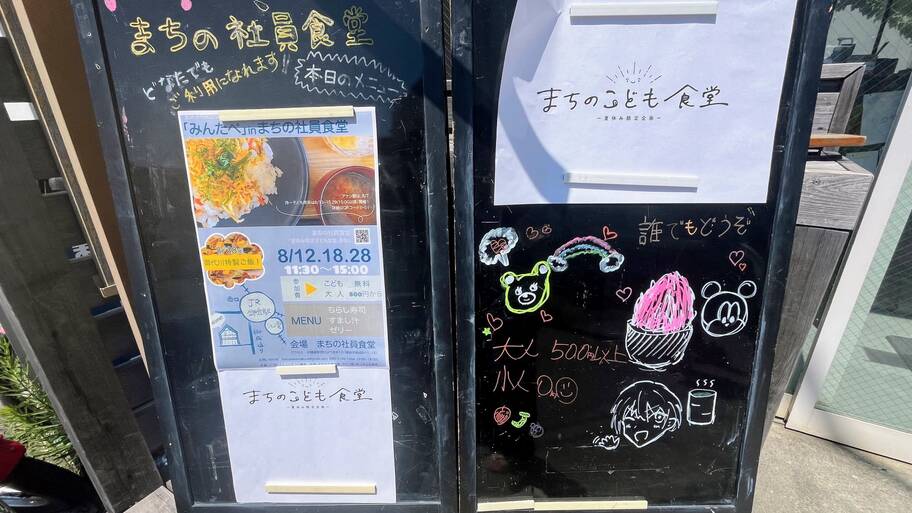 まちの社員食堂
どなたでも
ご利用になれます!!
本日のメニュー
「みんたべ」inまちの社員食堂
特製ご飯!
8/12.18.28
11:30〜15:00
参加費
こども 無料
大人 500円から
MENU
ちらし寿司
すまし汁
ゼリー
会場 まちの社員食堂
まちのこども食堂
ー夏休み限定企画ー
まちのこども食堂
ー夏休み限定企画ー
誰でもどうぞ
大人 500円以上
小人 0円